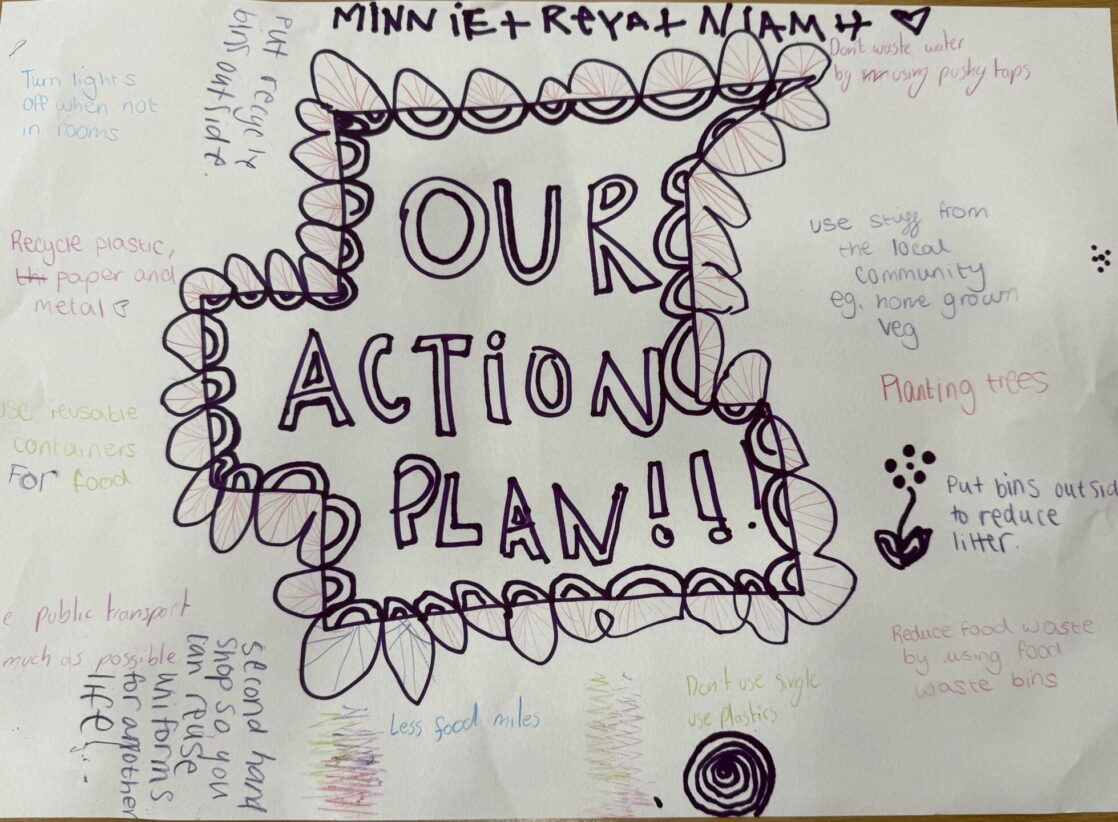 MINNiE + ReYA + NIAMH
Don't waste water
by using pushy taps
Turn lights
off when not
in rooms
Putt recycle
bins outside.
OUR
ACTiON
PLAN!!!
Recycle plastic,
paper and
metal
use stuff from
the local
community
eg. home grown
veg
Planting trees
use reusable
containers
For food
Put bins outsid
to reduce
litter.
e public transport
much as possible.
Reduce food waste
by using food
waste bins
second hand
shop so you
can reuse
uniforms
for another
life!
Less food miles
Don't use single
use plastics